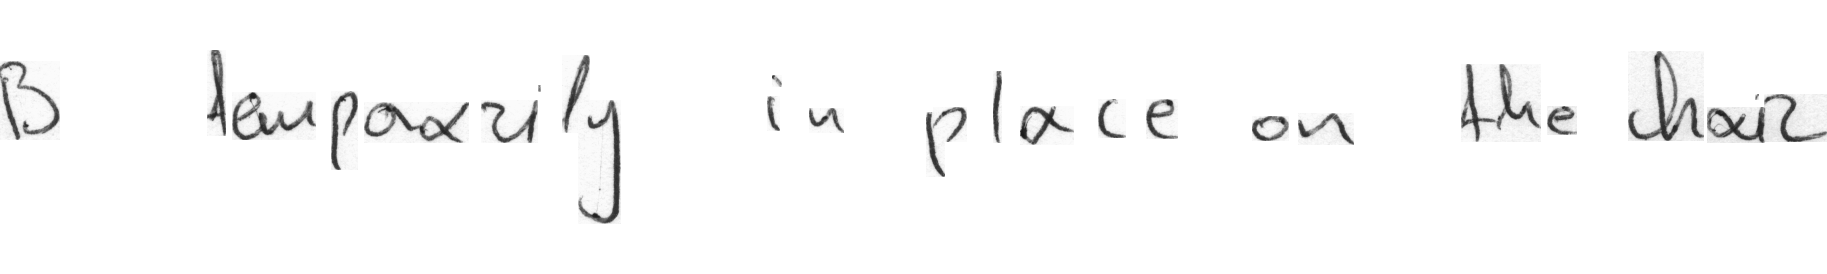 B tempoararily in place on the chair